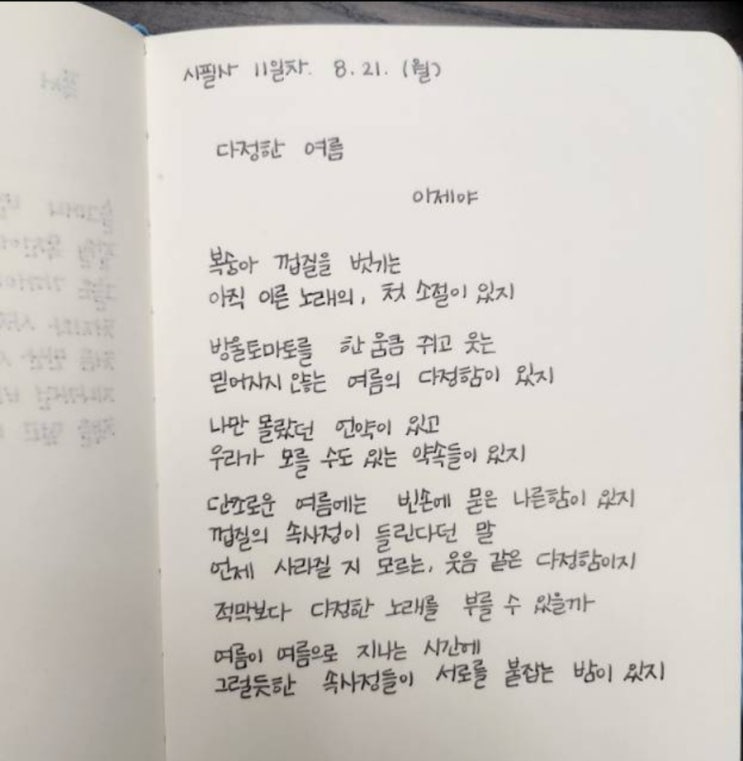 시필사 11일차. 8.21. (월)
다정한 여름
이제야
복숭아 껍질을 벗기는
아직 이른 노래의, 첫 소절이 있지
방울토마토를 한 움큼 쥐고 웃는
믿어지지 않는 여름의 다정함이 있지
나만 몰랐던 언약이 있고
우리가 모를 수도 있는 약속들이 있지
단조로운 여름에는 빈손에 묻은 나른함이 있지
껍질의 속사정이 들린다던 말
언제 사라질 지 모르는, 웃음 같은 다정함이지
적막보다 다정한 노래를 부를 수 있을까
여름이 여름으로 지나는 시간에
그럴듯한 속사정들이 서로를 붙잡는 밤이 있지